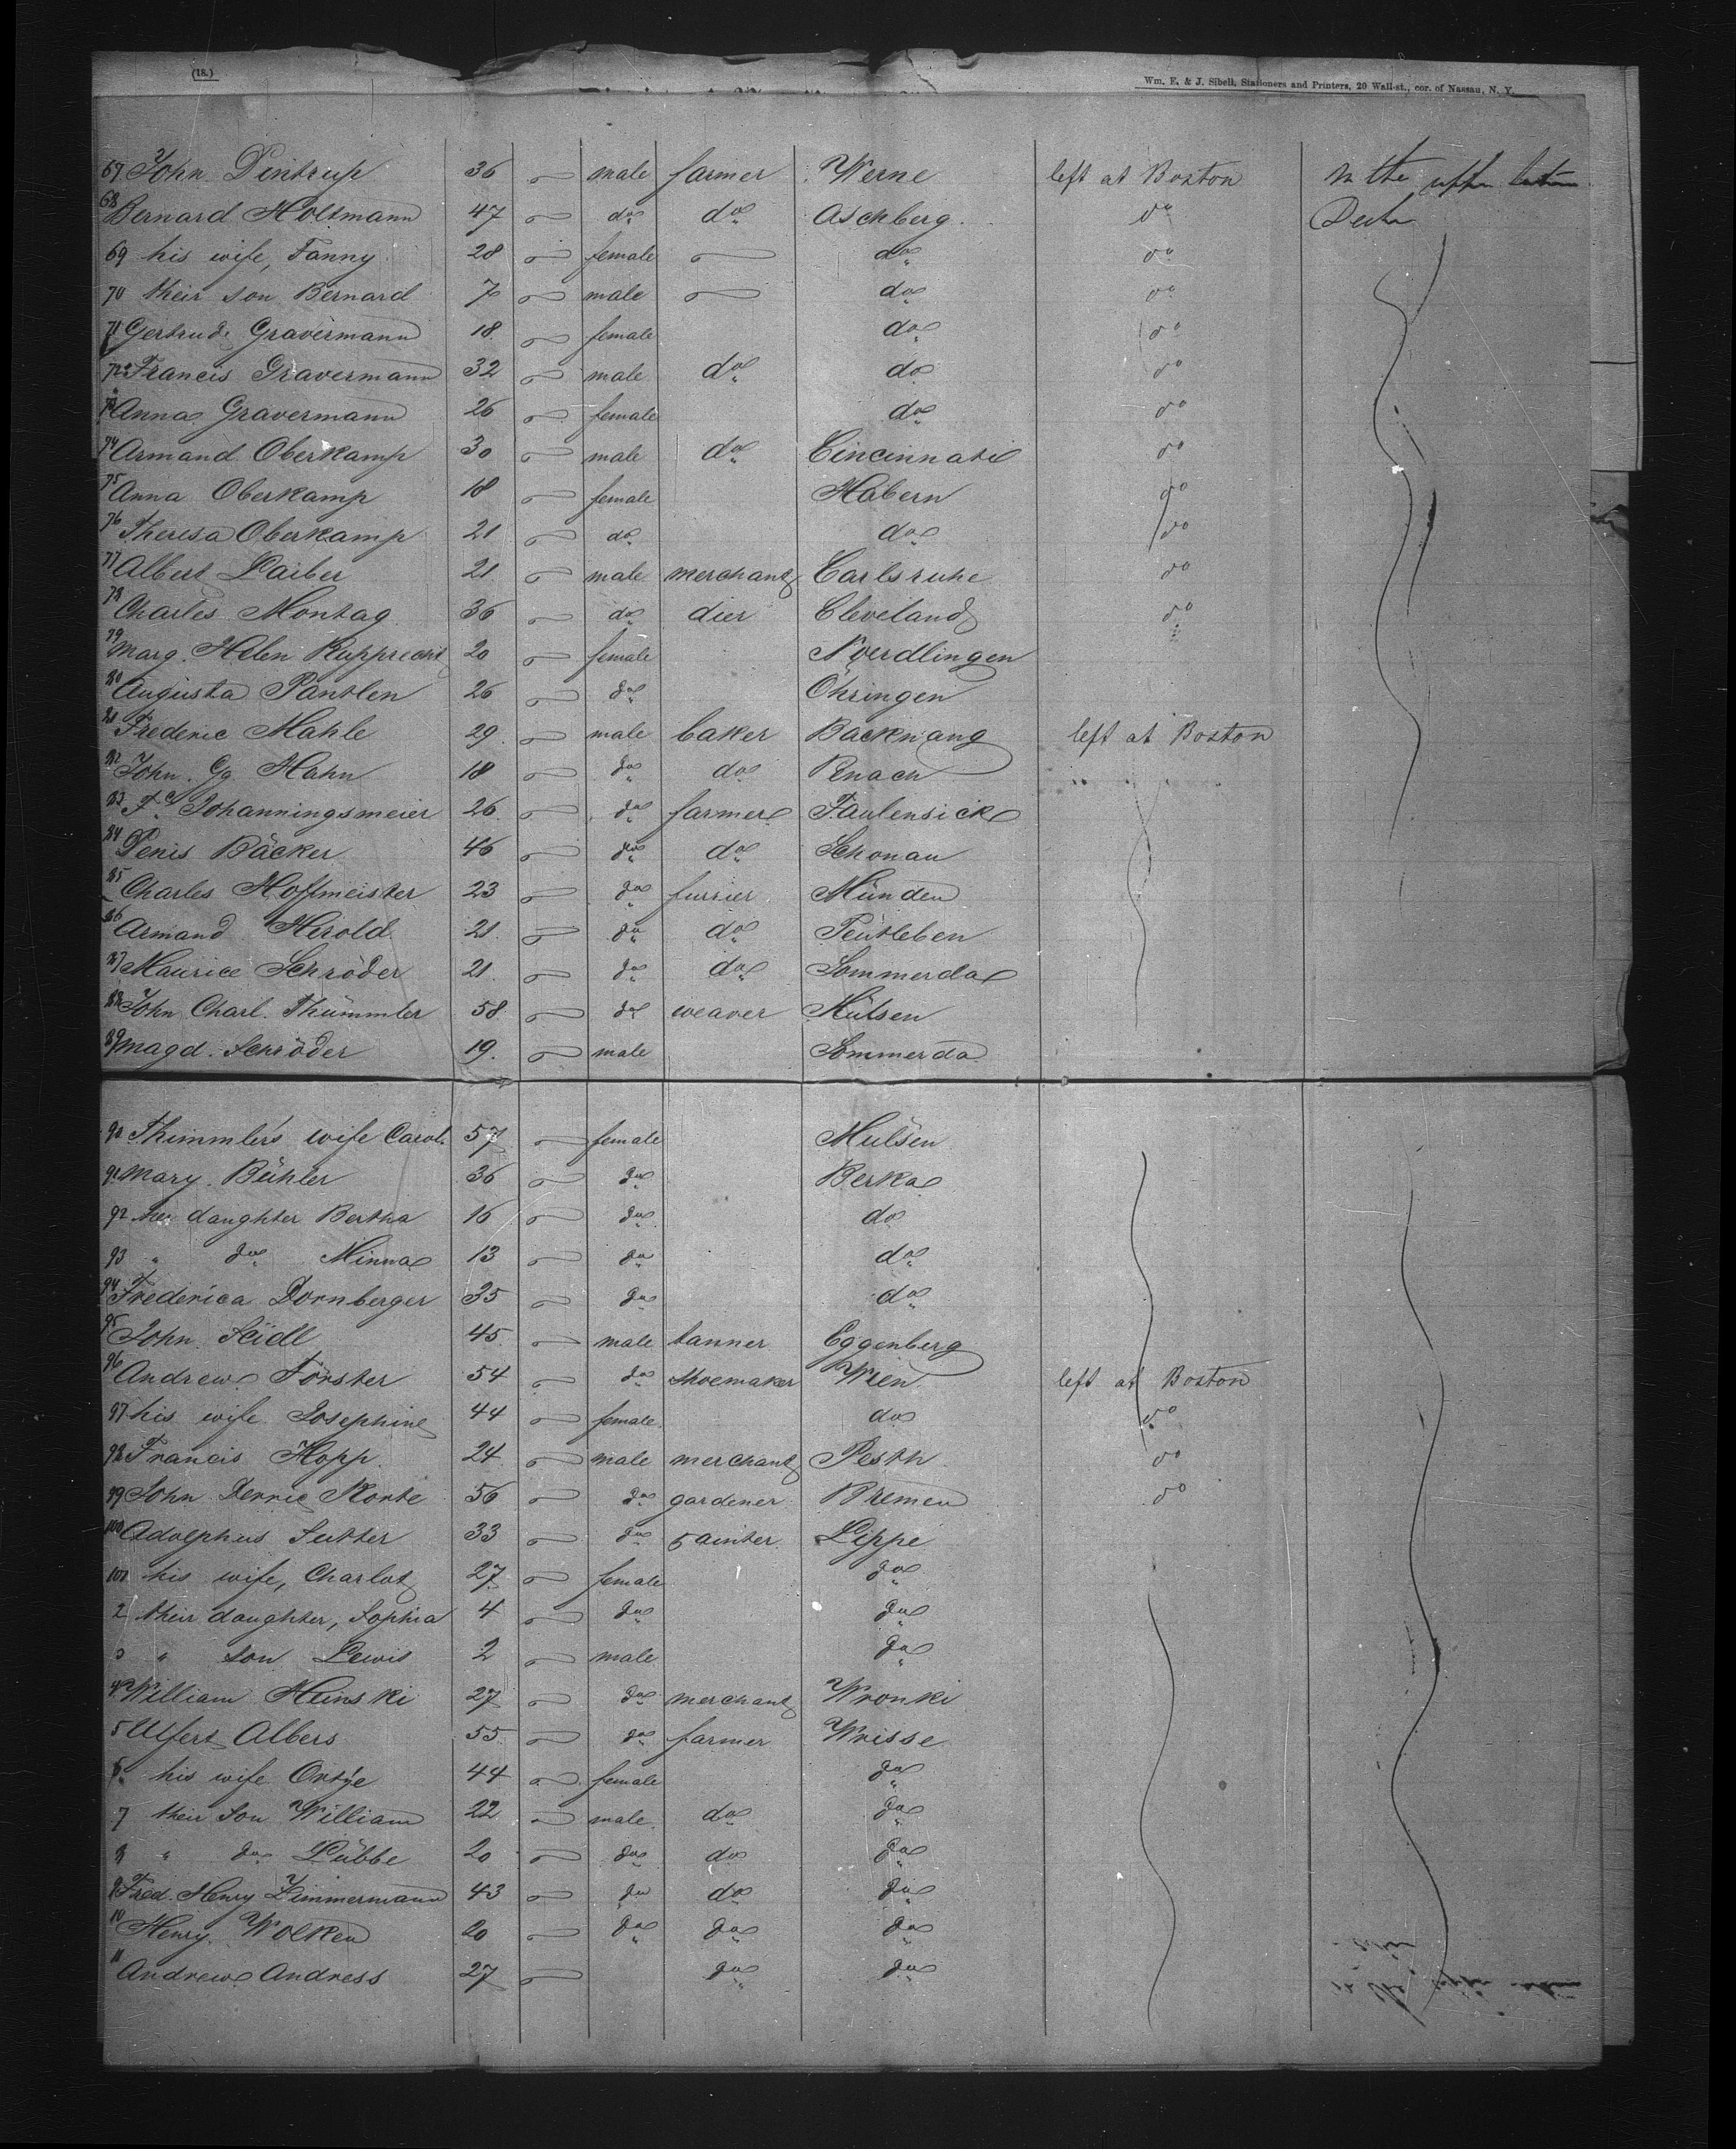 (18.)
Wm. E. & J. Sibell, Stationers and Printers, 20 Wall-st., cor. of Nassau, N. Y.
67 John Dintrup 36 male farmer Werne left at Boston In the upper between
68 Bernard Holtmann 47 do do Aschberg do Decks
69 his wife, Fanny 28 female do do
70 their son Bernard 7 male do do
71 Gertrude Gravermann 18. female do do
72 Francis Gravermann 32 male do do do
73 Anna Gravermann 26 female do do
74 Armand Oberkamp 30 male do Cincinnati do
75 Anna Oberkamp 18 female Habern do
76 Theresa Oberkamp 21 do do do
77 Albert Laiber 21. male merchant Carlsruhe do
78 Charles Montag 36 do dier Cleveland do
79 Marg. Helen Rupprecht 20 female Noerdlingen
80 Augusta Pantlen 26 do Öhringen
81 Frederic Mahle 29. male baker Backnang left at Boston
82 John Gg. Hahn 18 do do
83 Fd. Johanningsmeier 26. do farmer Faulensick
84 Denis Bäcker 46 do do Schonau
85 Charles Hoffmeister 23 do furrier Münden
86 Armand Herold 21. do do Teutleben
87 Maurice Schröder 21. do do Sommerda
88 John Charl. Thümmler 58. do weaver Mülsen
89 Magd. Schröder 19. male Sommerda
90 Thümmler's wife Carol. 57 female Mülsen
91 Mary Bühler 36 do Berka
92 her daughter Bertha 16 do do
93 " do Minna 13 do do
94 Frederica Dornberger 35 do do
95 John Seidl 45. male tanner Eggenberg
96 Andrew Förster 54 do shoemaker Wien left at Boston
97 his wife Josephine 44 female do do
98 Francis Hopp. 24. male merchant Pesth do
99 John Derric Korte 56 do gardener Bremen do
100 Adolphus Sutter 33 do painter Lippe
101 his wife, Charlot 27 female do
2 their daughter, Sophia 4 do do
3 " son Lewis 2 male do
4 William Heinski 27 do merchant Wronki
5 Ulfert Albers 55. do farmer Wrisse
6 his wife Ortje 44 female do
7 their son William 22 male do do
8 " do Lübbe 20 do do do
9 Fred. Henry Zimmermann 43 do do do
10 Henry Wolken 20 do do do
11 Andrew Andress 27 do do